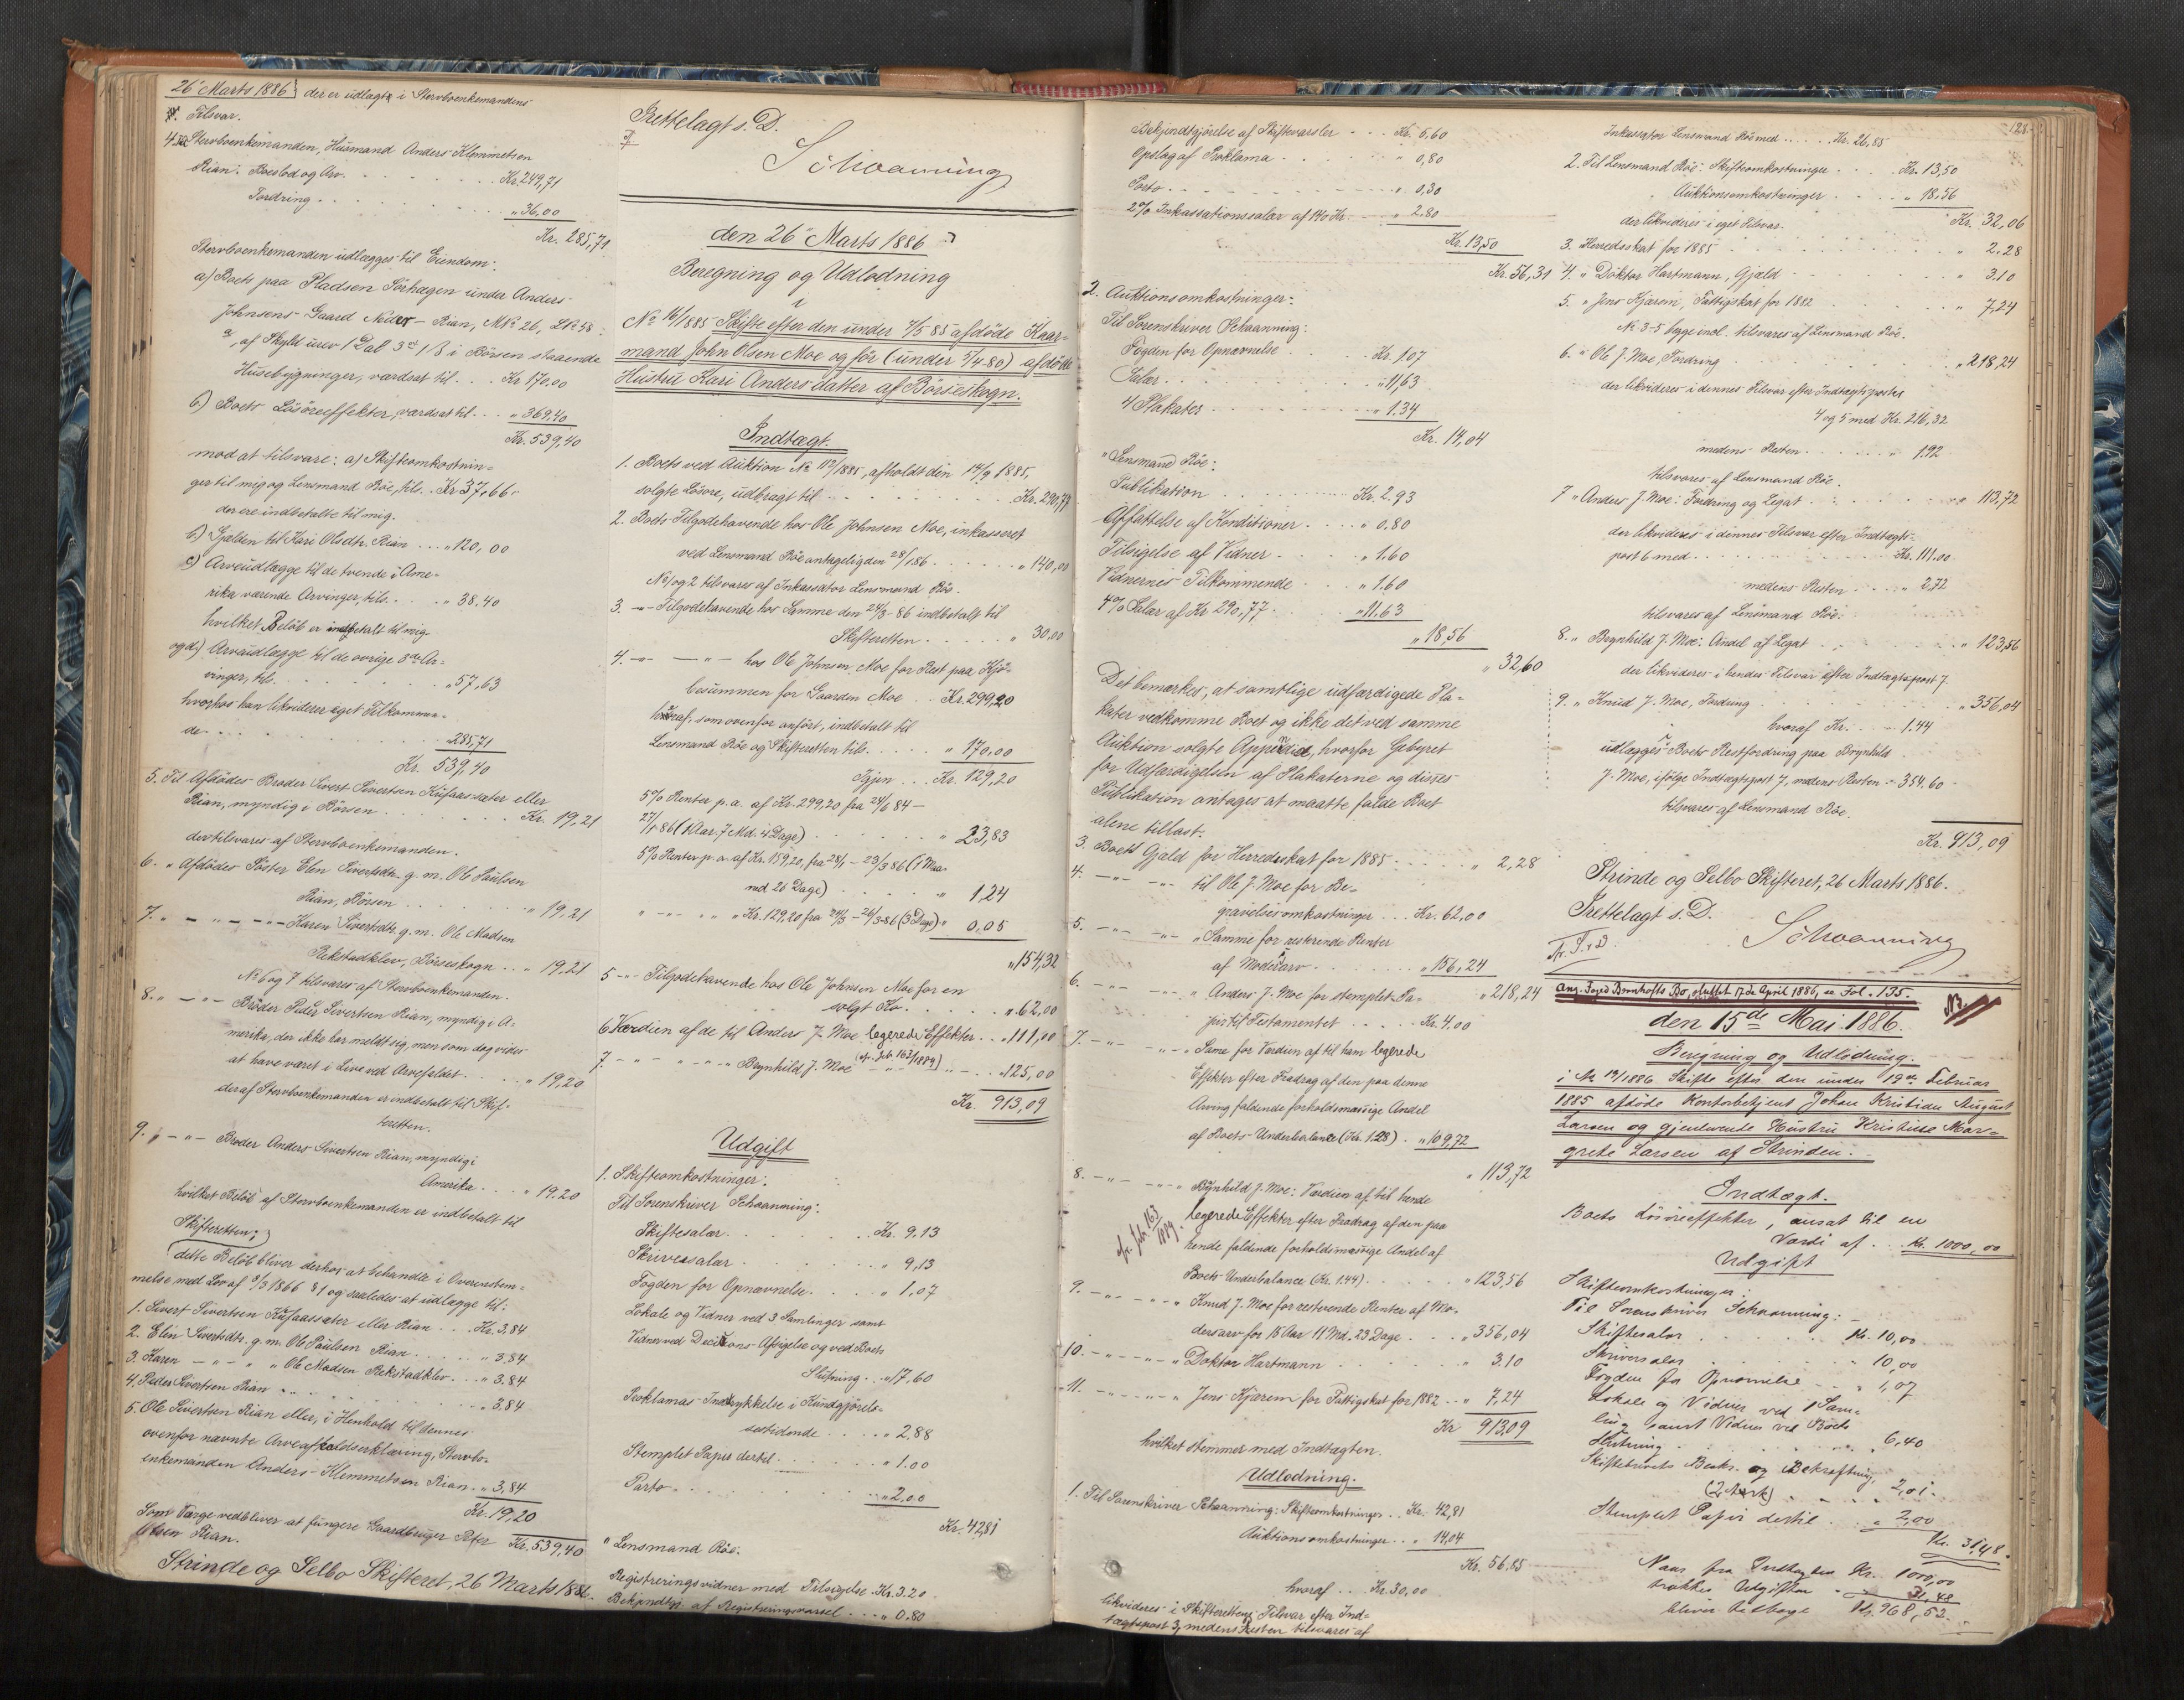 26' Marts 1886 der er udlagt i Stervboenkemandens
Tilsvar.
4. Til Stervboenkemanden, Husmand Anders Klemmetsen
Rian: Boeslod og Arv . . . Kr. 249,71
Fordring . . . " 36,00
Kr. 285,71
Stervboenkemanden udlægges til Eiendom:
a) Boets paa Pladsen Törhagen under Anders
Johnsens Gaard Neder-Rian, MNo 26, LNo 58
a, af Skyld urev 1 Dal 3 ort 1 ß i Börsen staaende
Husebygninger, værdsat til . . . Kr 170,00
b) Boets Lösöreeffekter, værdsat til . . . " 369,40
Kr. 539,40
mod at tilsvare: a) Skifteomkostnin-
ger til mig og Lensmand Röe, tils. . Kr 37,66
der ere indbetalte til mig.
b) Gjælden til Kari Olsdtr. Rian . . . " 120,00
c) Arveudlægge til de tvende i Ame-
rika værende Arvinger, tils. . . " 38.40
hvilket Belöb er indbetalt til mig.
og d) Arveudlægge til de övrige 3de Ar-
vinger, tils. . . " 57,63
hvorhos han likviderer eget Tilkommen-
de . . . " 285,71
Kr. 539,40
5. Til Afdödes Broder Sivert Sivertsen Küfaassæter eller
Rian, myndig i Börsen . . . Kr. 19,21
der tilsvares af Stervboenkemanden.
6. " Afdödes Söster Elen Sivertsdtr. g. m. Ole Paulsen
Rian, Börsen . . . " 19,21
7. " - " - " - Karen Sivertsdtr. g. m. Ole Madsen
Rekstadklev, Börseskogn . . " 19,21
No 6 og 7 tilsvares af Stervboenkemanden.
8. " - " - Broder Peder Sivertsen Rian, myndig i A-
merika, der ikke har meldt sig, men som dog vides
at have været i Live ved Arvefaldet . . . " 19,20
der af Stervboenkemanden er indbetalt til Skif-
teretten.
9. " - " - Broder Anders Sivertsen Rian, myndig i
Amerika . . . " 19.20
hvilket Belöb af Stervboenkemanden er indbetalt til
Skifteretten;
dette Belöb bliver derhos at behandle i Overenstem-
melse med Lov af 9/3 1866 § 1 og saaledes at udlægge til:
1. Sivert Sivertsen Küfaassæter eller Rian . . . Kr. 3,84
2. Elen Sivertsdtr. g. m. Ole Paulsen Rian . . . " 3,84
3. Karen - " - " " Ole Madsen Rekstadklev . . " 3.84
4. Peder Sivertsen Rian . . . " 3,84
5. Ole Sivertsen Rian eller, i Henhold til dennes
ovenfor nævnte Arveafkaldserklæring, Stervbo-
enkemanden Anders Klemmetsen Rian . " 3,84
Kr. 19,20
Kr. 539,40
Som Værge vedbliver at fungere Gaardbruger Peter
Olsen Rian.
Strinde og Selbo Skifteret, 26 Marts 1886.
Rettelagt s. D.
Schoanning
den 26' Marts 1886
Beregning og Udlodning
i
No 16/1885 Skifte efter den under 7/5 85 afdöde Kaar-
mand John Olsen Moe og för (under 5/4 80) afdöde
Hustru Kari Andersdatter af Börseskogn.
Indtægt.
1. Boets ved Auktion No 112/1885, afholdt den 14/9 1885,
solgte Lösöre, udbragt til . . . Kr. 290,77
2. Boets Tilgodehavende hos Ole Johnsen Moe, inkasseret
ved Lensmand Röe antageligden 28/1 86 . . . " 140,00
No 1 og 2 tilsvares af Inkassator Lensmand Röe.
3. - " - Tilgodehavende hos Samme den 24/3 - 86 indbetalt til
Skifteretten . . . " 30.00
4. - " - - " - hos Ole Johnsen Moe for Rest paa Kjö-
besummen for Gaarden Moe . . Kr. 299,20
hvoraf, som ovenfor anfört, indbetalt til
Lensmand Röe og Skifteretten tils. . . " 170,00
Igjen . . . Kr. 129,20
5% Renter p. a. af Kr. 299,20 fra 24/6 84 -
27/1 86 (1 Aar. 7 Md. 4 Dage) . . . " 23,83
5% Renter p. a. af Kr. 159,20, fra 28/1 - 23/3 86 (1 Maa-
ned 26 Dage) . . . " 1,24
" - " - " " Kr. 129,20 fra 24/3 - 26/3-86 (3 Dage) " 0,05
" 154,32
5 - " - Tilgodehavende hos Ole Johnsen Moe for en
solgt Ko . . . " 62,00
6 Værdien af de til Anders J. Moe legerede Effekter . . " 111,00
7. - " - " - " - Brynhild J. Moe (cfr. Jrb. 163/1889) " - . . " 125,00
Kr. 913,09
Udgift
1. Skifteomkostninger.
Til Sorenskriver Schoanning:
Skiftesalær . . . Kr. 9,13
Skriversalær . . . " 9,13
Fogden for Opnævnelse . . . " 1,07
Lokale og Vidner ved 3 Samlinger samt
Vidner ved Decisions-Afsigelse og ved Boets
Slutning . . " 17,60
Proklamas Indrykkelse i Kundgjörels-
sestidende . . . " 2.88
Stemplet Papir dertil . . . " 1.00
Porto . . . " 2,00
Kr. 42,81
" Lensmand Röe:
Registreringsvidner med Tilsigelse . Kr. 3.20
Bekjendtgj. af Registreringsvarsel . . . " 0.80
128
Bekjendtgjörelse af Skiftevarsler . . . Kr. 6.60
Opslag af Proklama . . . " 0,80
Porto . . . " 0,30
2% Inkassationssalær af 140 Kr. . . " 2.80
Kr. 13,50
Kr. 56,31
2. Auktionsomkostninger:
Til Sorenskriver Schoanning:
Fogden for Opnævnelse . . . Kr. 1.07
Salær . . . " 11,63
4 Plakater . . . " 1.34
Kr. 14,04
" Lensmand Röe:
Publikation . . . Kr. 2.93
Affattelse af Konditioner . . . " 0.80
Tilsigelse af Vidner . . . " 1.60
Vidnernes Tilkommende . . . " 1.60
4% Salær af Kr. 290,77 . . " 11.63
" 18,56
" 32,60
Det bemærkes, at samtlige udfærdigede Pla-
kater vedkomme Boet og ikke det ved samme
Auktion solgte Appendix, hvorfor Gebyret
for Udfærdigelsen af Plakaterne og disses
Publikation antages at maatte falde Boet
alene tillast.
3. Boets Gjæld for Herredsskat for 1885 . . . " 2,28
4. - " - - " - til Ole J. Moe for Be-
gravelsesomkostninger . . . Kr. 62,00
5. - " - - " - " Samme for resterende Renter
af Modersarv . . . " 156,24
" 218,24
6. - " - - " - " Anders J. Moe for stemplet Pa-
pir til Testamentet . . . Kr. 4,00
7. - " - - " - " Same for Værdien af til ham legerede
Effekter efter Fradrag af den paa denne
Arving faldende forholdsmæssige Andel
af Boets Underbalance (Kr. 1.28) . " 109,72
" 113,72
8. - " - - " - " Brynhild J. Moe: Værdien af til hende
cfr. Jrb. 163/1889.
legerede Effekter efter Fradrag af den paa
hende faldende forholdsmæssige Andel af
Boets Underbalance (Kr. 1.44) . . . " 123,56
9. - " - - " - " Knud J. Moe for resterende Renter af Mo-
dersarv for 15 Aar 11 Md. 23 Dage . . . " 356,04
10. - " - " - " Doktor Hartmann . . . " 3.10
11. - " - " - " Jens Kjærem for Fattigskat for 1882 . . " 7,24
Kr 913,09
hvilket stemmer med Indtægten.
Udlodning.
1. Til Sorenskriver Schoanning: Skifteomkostninger . . Kr. 42,81
Auktionsomkostninger . . " 14,04
Kr. 56,85
hvoraf . . Kr. 30,00
likvideres i Skifterettens Tilsvar efter Ind-
tægtspost 3, medens Resten tilsvares af
Inkassator Lensmand Röe med . . . Kr. 26,85
2. Til Lensmand Röe: Skifteomkostninger . . . Kr. 13,50
Auktionsomkostninger . . . " 18,56
Kr. 32,06
der likvideres i eget Tilsvar.
3. Herredsskat for 1885 . . . " 2.28
4. " Doktor Hartmann, Gjæld . . . " 3.10
5. " Jens Kjærem, Fattigskat for 1882 . . . " 7,24
No 3-5 begge incl. tilsvares af Lensmand Röe.
6. " Ole J. Moe, Fordring . . . " 218,24
der likvideres i dennes Tilsvar efter Indtægtsposter
4 og 5 med Kr. 216,32
medens Resten . . . " 1.92
tilsvares af Lensmand Röe.
7 " Anders J. Moe: Fordring og Legat . . . " 113,72
der likvideres i dennes Tilsvar efter Indtægts-
post 6 med . . . Kr. 111.00
medens Resten . . . " 2,72
tilsvares af Lensmand Röe.
8. " Brynhild J. Moe: Andel af Legat . . . " 123,56
der likvideres i hendes Tilsvar efter Indtægtspost 7.
9. " Knud J. Moe, Fordring . . . " 356,04
hvoraf Kr. . . . 1.44
udlægges i Boets Restfordring paa Brynhild
J. Moe, ifölge Indtægtspost 7, medens Resten - 354.60 -
tilsvares af Lensmand Röe.
Kr. 913,09
Strinde og Selbo Skifteret, 26 Marts 1886.
Rettelagt s. D.
Schoanning
Ang. Foged Bernhofts Bo, sluttet 17de April 1886, se Fol. 135.
NB.
den 15de Mai 1886.
Beregning og Udlodning.
i No 19/1886 Skifte efter den under 19de Februar
1885 afdöde Kontorbetjent Johan Kristian August
Larsen og gjenlevende Hustru Kristine Mar-
grete Larsen af Strinden.
Indtægt.
Boets Lösöreeffekter, ansat til en
Værdi af . . Kr. 1000,00
Udgift
Skifteomkostninger:
Til Sorenskriver Schoanning:
Skiftesalær . . . Kr. 10,00
Skriversalær . . . " 10,00
Fogden for Opnævnelse . . . " 1,07
Lokale og Vidner ved 1 Sam-
ling samt Vidner ved Boets
Slutning . . . " 6,40
Skiftebrevets Besk. og Bekræftning
" 2,01.
Stemplet Papir dertil . . . " 2,00
Kr. 31,48.
Naar fra Indtægten Kr. 1000,00
trækkes Udgiften " 31,48
bliver tilbage Kr. 968,52.